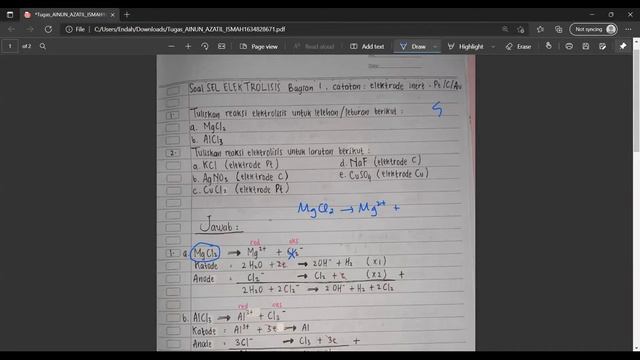 *Tugas_AINUN_AZATIL_ISMAH1634828671.pdf
C:/Users/Endah/Downloads/Tugas_AINUN_AZATIL_ISMAH1634828671.pdf
Not syncing
1 of 2
Page view
Read aloud
Add text
Draw
Highlight
Erase
Date
Soal SEL ELEKTROLISIS Bagian 1, catatan : elektrode inert - Pt/C/Au
1. Tuliskan reaksi elektrolisis untuk lelehan/leburan berikut :
5
a. MgCl2
b. AlCl3
2. Tuliskan reaksi elektrolisis untuk larutan berikut :
a. KCl (elektrode Pt) d. NaF (elektrode C)
b. AgNO3 (elektrode C) e. CuSO4 (elektrode Cu)
c. CuCl2 (elektrode Pt)
MgCl2 → Mg2+ +
Jawab :
red oks
1. a. MgCl2 → Mg2+ + Cl2-
Katode = 2H2O + 2e → 2OH- + H2 (x1)
Anode = Cl2- → Cl2 + e (x2) +
2H2O + 2Cl2- → 2OH- + H2 + 2Cl2
red oks
b. AlCl3 → Al3+ + Cl2-
Katode = Al3+ + 3e → Al
Anode = 3Cl- → Cl3 + 3e +